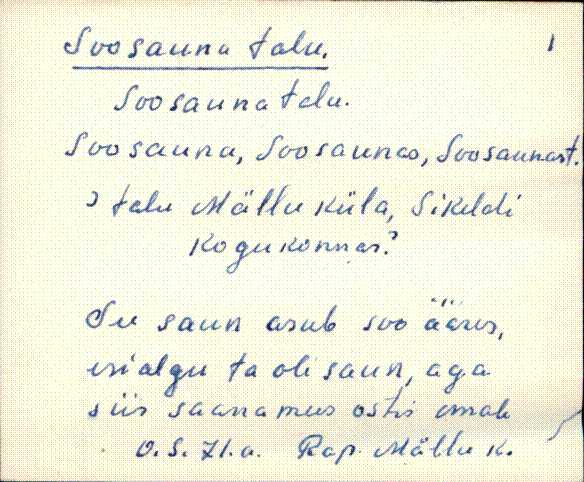 Soosauna talu.
1
Soosauna talu.
Soosauna, Soosaunas, Soosaunast.
? talu Mällu küla, Sikeldi
kogukonnas.?
Su saun asub soo ääres,
esialgu ta oli saun, aga
siis saanamees ostis omale
O. S. 71.a. Rap. Mällu k.